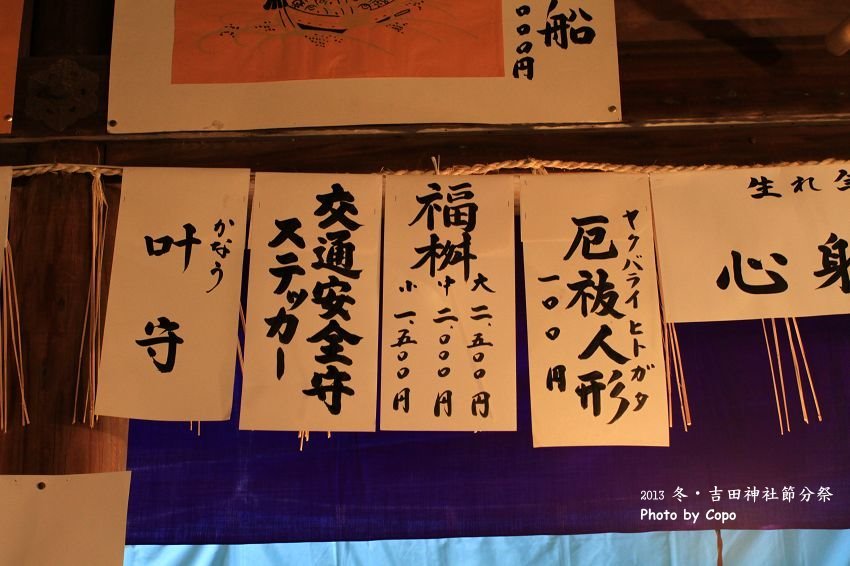 船
〇〇〇円
生れ
身
心
ヤクバライヒトガタ
厄祓人形
一〇〇円
福桝
大二、五〇〇円
中二、〇〇〇円
小一、五〇〇円
交通安全守
ステッカー
かなう
叶守
2013 冬・吉田神社節分祭
Photo by Copo